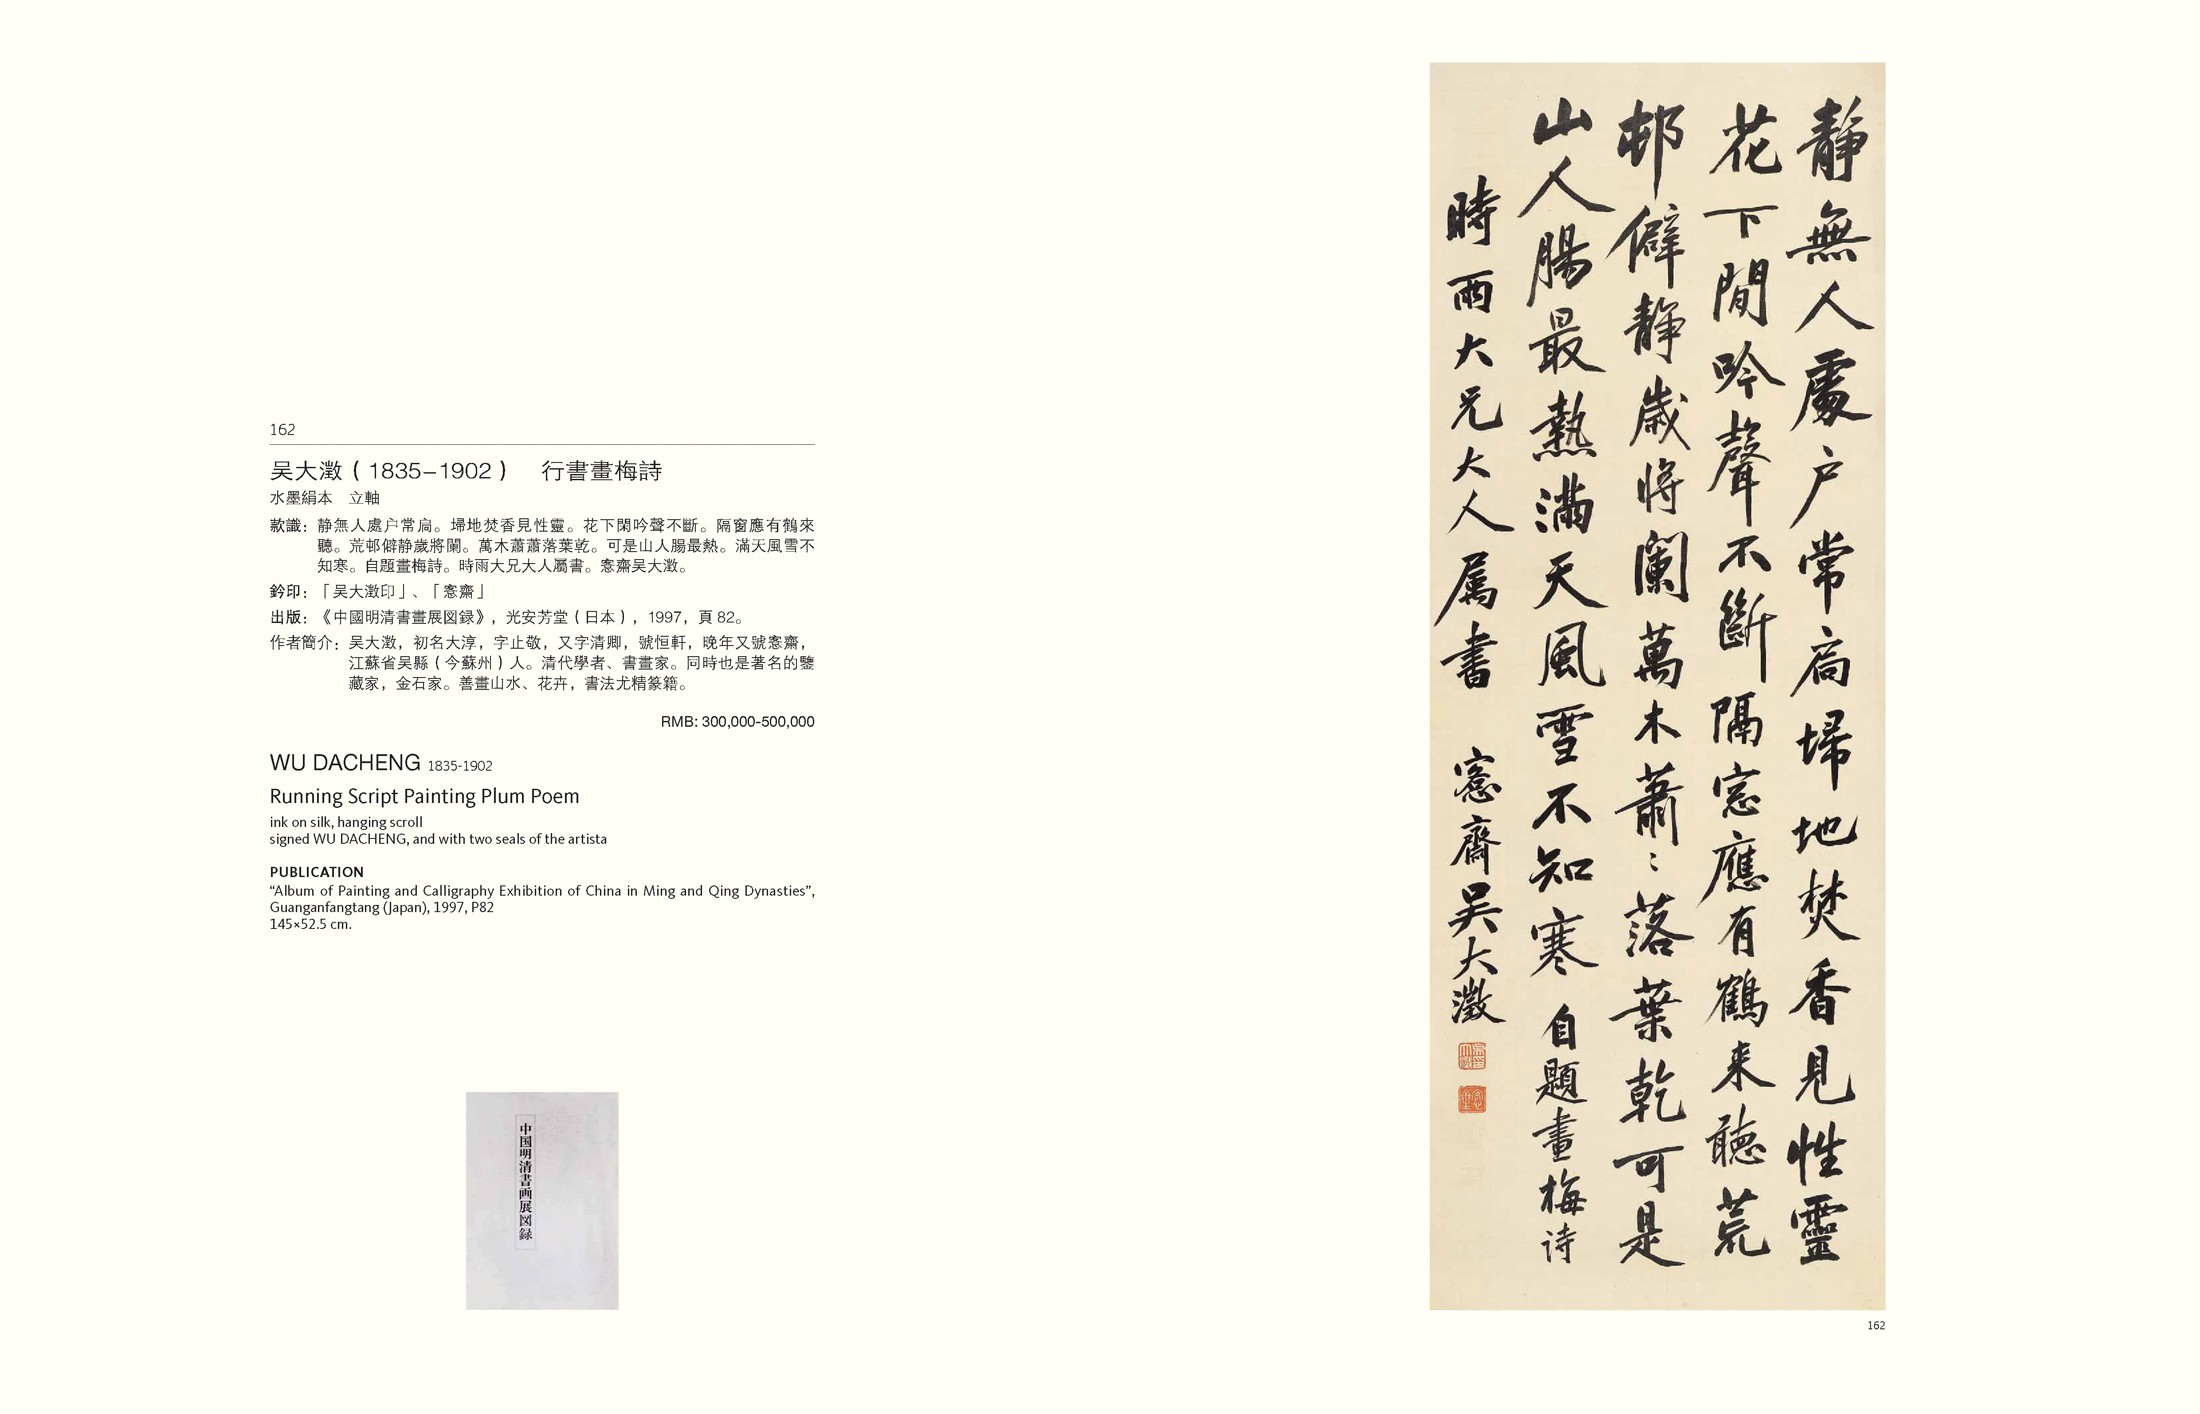 162
吴大澂（1835–1902）　行書畫梅詩
水墨絹本　立軸
款識：静無人處户常扃。埽地焚香見性靈。花下閑吟聲不斷。隔窗應有鶴來
聽。荒邨僻静歲將闌。萬木蕭蕭落葉乾。可是山人腸最熱。滿天風雪不
知寒。自題畫梅詩。時雨大兄大人屬書。愙齋吴大澂。
鈐印：「吴大澂印」、「愙齋」
出版：《中國明清書畫展図録》，光安芳堂（日本），1997，頁 82。
作者簡介：吴大澂，初名大淳，字止敬，又字清卿，號恒軒，晚年又號愙齋，
江蘇省吴縣（今蘇州）人。清代學者、書畫家。同時也是著名的鑒
藏家，金石家。善畫山水、花卉，書法尤精篆籀。
RMB: 300,000-500,000
WU DACHENG 1835-1902
Running Script Painting Plum Poem
ink on silk, hanging scroll
signed WU DACHENG, and with two seals of the artista
PUBLICATION
“Album of Painting and Calligraphy Exhibition of China in Ming and Qing Dynasties”,
Guanganfangtang (Japan), 1997, P82
145×52.5 cm.
中国明清書画展図録
靜無人處户常扃埽地焚香見性靈
花下閒吟聲不斷隔窓應有鶴来聽荒
邨僻靜歲將闌萬木蕭〻落葉乾可是
山人腸最熱滿天風雪不知寒 自題畫梅詩
時雨大兄大人屬書 愙齋吴大澂
吴大澂印
愙齋
162